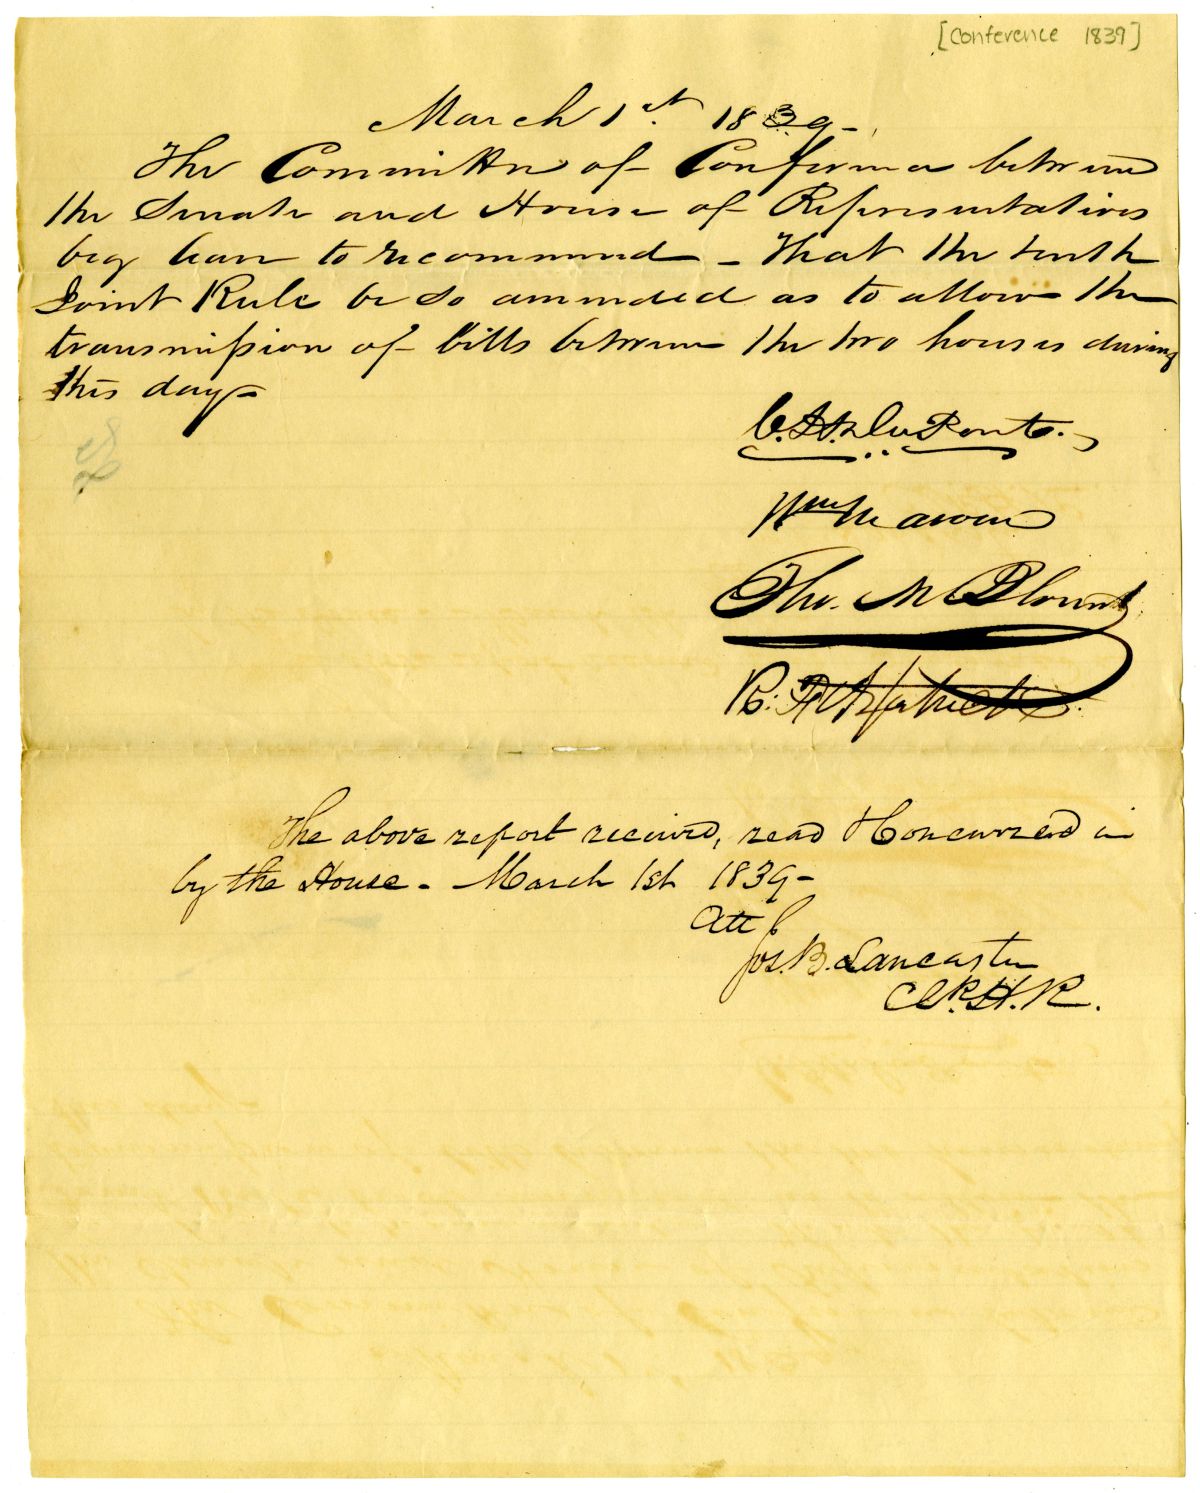 [Conference 1839]
March 1st 1839-
The Committee of Conference between
the Senate and House of Representatives
beg leave to recommend - That the tenth
Joint Rule be so amended as to allow the
transmission of bills between the two houses during
this day-
C. H. DuPont.
Wm Marvin
Tho. M Blount
R. Fitzpatrick
The above report received, read & concurred in
by the House - March 1st 1839-
Att
Jos. B. Lancaster
Clk. H. R.